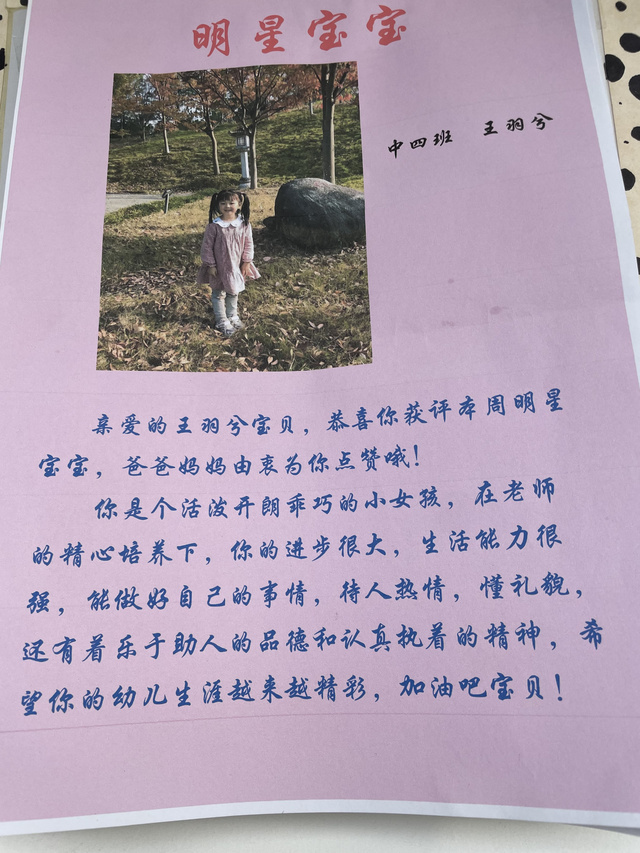 明星宝宝
中四班 王羽兮
亲爱的王羽兮宝贝，恭喜你获评本周明星
宝宝，爸爸妈妈由衷为你点赞哦！
你是个活泼开朗乖巧的小女孩，在老师
的精心培养下，你的进步很大，生活能力很
强，能做好自己的事情，待人热情，懂礼貌，
还有着乐于助人的品德和认真执着的精神，希
望你的幼儿生涯越来越精彩，加油吧宝贝！